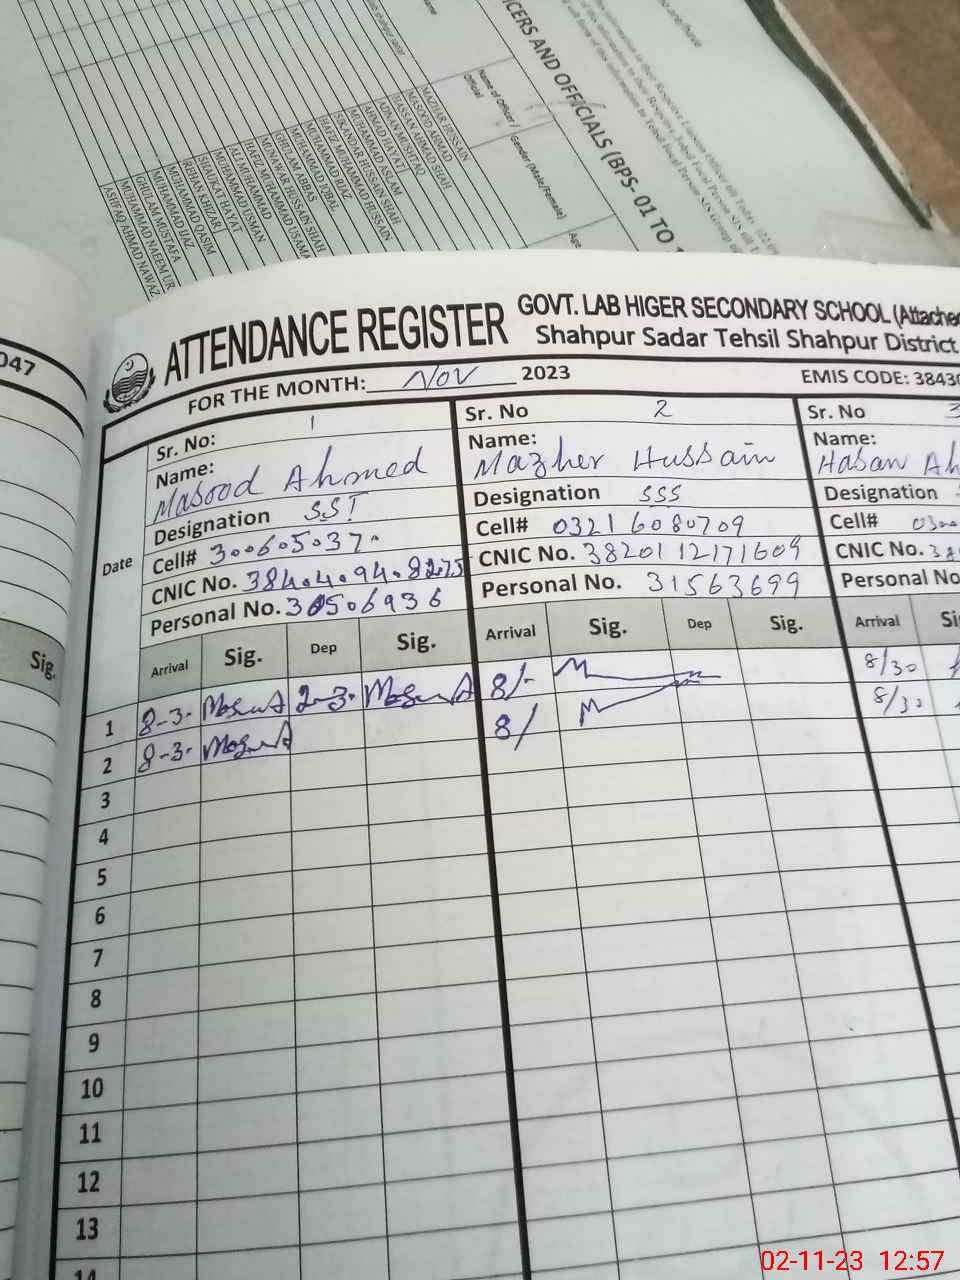 CERS AND OFFICIALS (BPS- 01 TO 1
Name of Officer / Official
Gender (Male/Female)
Age
MAZHAR HUSSAIN
MASOOD AHMAD
HASSAN AHMAD SHAH
ADNAN MUSHTAQ
AHMAD HAYAT
MUHAMMAD ASLAM
SIKANDAR HUSSAIN SHAH
MUHAMMAD RIAZ
MUHAMMAD IQBAL
GHULAM ABBAS
MUNAWAR HUSSAIN SHAH
HAFIZ MUHAMMAD USAMA
ALI MUHAMMAD
MUHAMMAD USMAN
SHAUKAT HAYAT
REHAN KHIZAR
MUHAMMAD QASIM
MUHAMMAD IJAZ
GHULAM MUSTAFA
MUHAMMAD NAEEM UR
ASHFAQ AHMAD NAWAZ
047
Sig.
ATTENDANCE REGISTER
GOVT. LAB HIGER SECONDARY SCHOOL (Attached
Shahpur Sadar Tehsil Shahpur District
FOR THE MONTH: Nov 2023
EMIS CODE: 38430
Date
Sr. No: 1
Name: Masood Ahmed
Designation SST
Cell# 300605037.
CNIC No.
Personal No. 30506936
Arrival Sig. Dep Sig.
Sr. No 2
Name: Mazher Hussain
Designation SSS
Cell# 0321 6080709
CNIC No. 38201 12171609
Personal No. 31563699
Arrival Sig. Dep Sig.
Sr. No 3
Name: Hasan Ah
Designation
Cell# 0300
CNIC No. 38
Personal No
Arrival Si
1 8-3. Masood 2-3. Masood 8/- 8/30
2 8-3. Masood 8/ 8/30
3
4
5
6
7
8
9
10
11
12
13
14
02-11-23 12:57